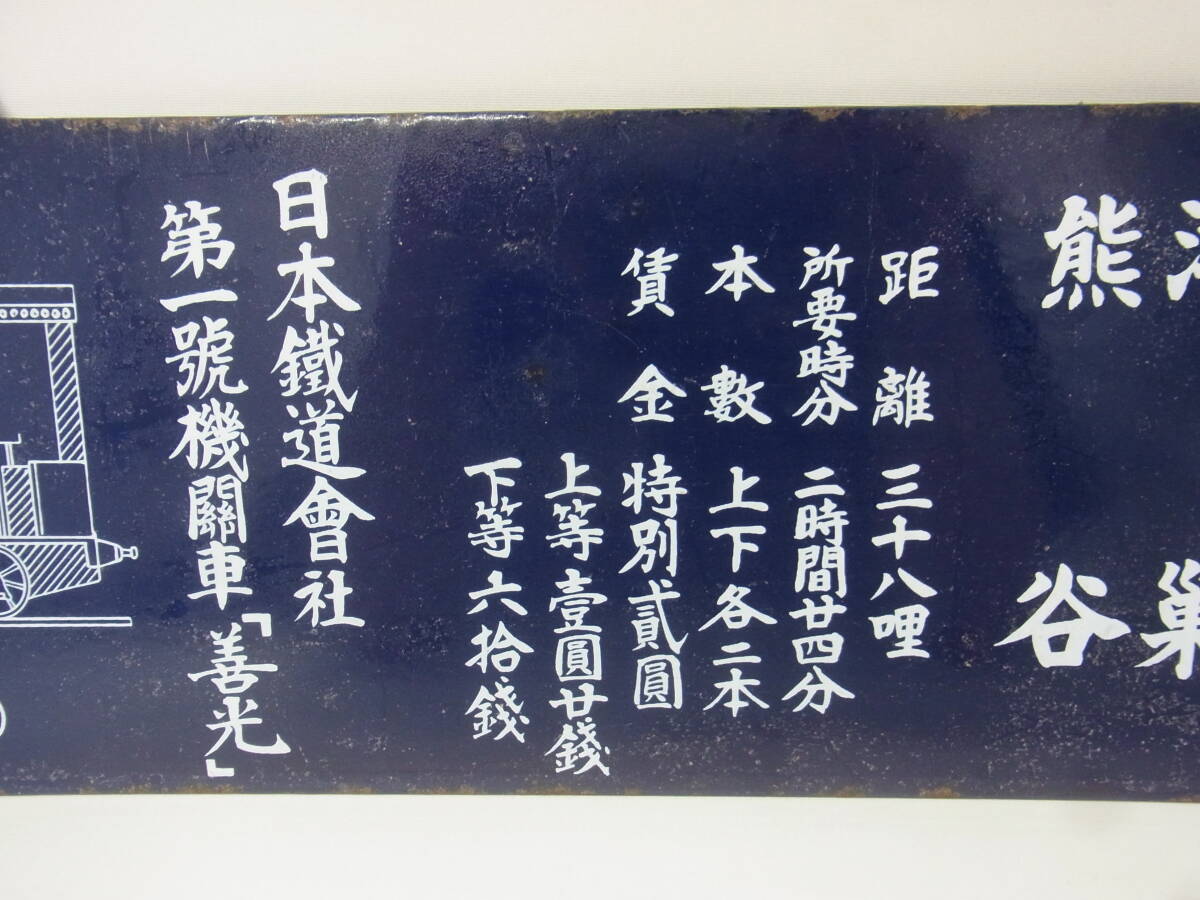 巣
熊谷
距離 三十八哩
所要時分 二時間廿四分
本數 上下各二本
賃金 特別貳圓
上等壹圓廿錢
下等六拾錢
日本鐵道會社
第一號機關車「善光」